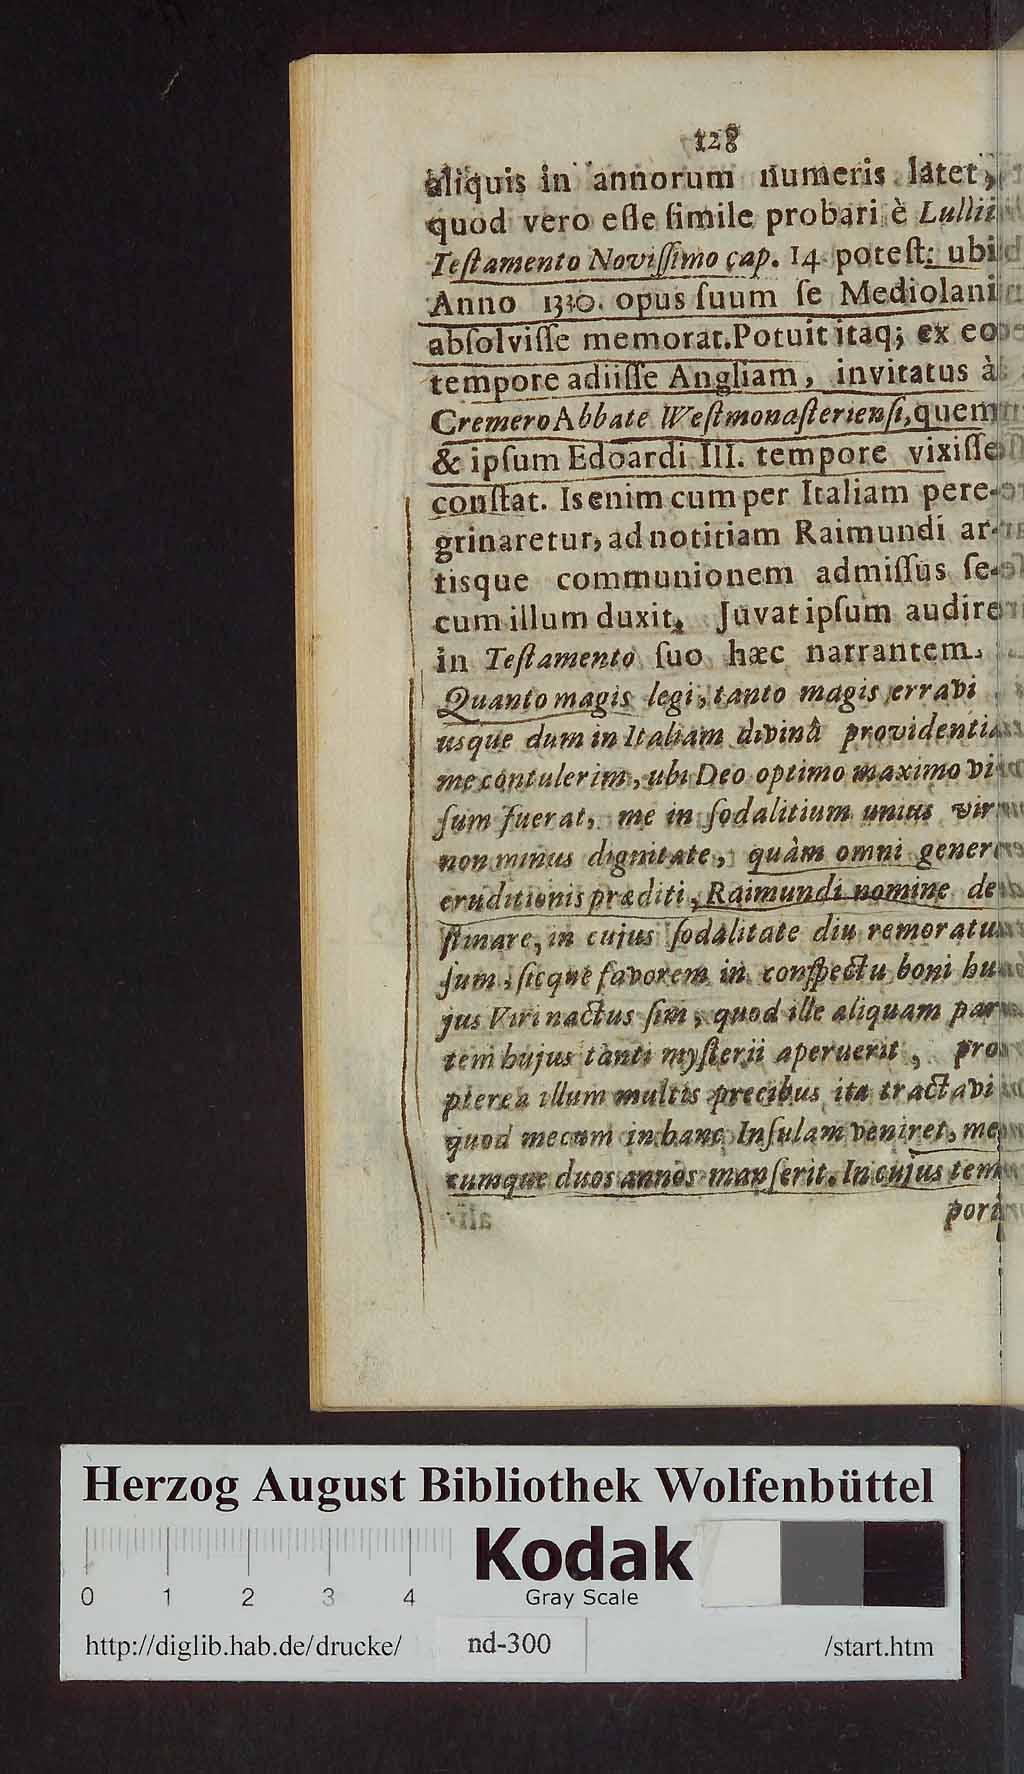 128
aliquis in annorum numeris latet,
quod vero eſſe ſimile probari è Lullii
Teſtamento Noviſſimo cap. 14 poteſt: ubi
Anno 1330. opus ſuum ſe Mediolani
abſolviſſe memorat. Potuit itaq; ex eo
tempore adiiſſe Angliam, invitatus à
Cremero Abbate Weſtmonaſterienſi, quem
& ipſum Edoardi III. tempore vixiſſe
conſtat. Is enim cum per Italiam pere-
grinaretur, ad notitiam Raimundi ar-
tisque communionem admiſſus ſe-
cum illum duxit. Juvat ipſum audire
in Teſtamento ſuo hæc narrantem.
Quanto magis legi, tanto magis erravi
usque dum in Italiam divinâ providentia
me contulerim, ubi Deo optimo maximo vi-
ſum fuerat, me in ſodalitium unius viri
non minus dignitate, quàm omni genere
eruditionis præditi, Raimundi nomine de-
ſtinare, in cujus ſodalitate diu remoratus
ſum, ſicque favorem in conſpectu boni hu-
jus Viri nactus ſim, quod ille aliquam par-
tem hujus tanti myſterii aperuerit, pro-
pterea illum multis precibus ita tractavi
quod mecum in hanc Inſulam veniret, me-
cumque duos annos manſerit. In cujus tem-
pori
Herzog August Bibliothek Wolfenbüttel
Kodak
Gray Scale
0 1 2 3 4
http://diglib.hab.de/drucke/ nd-300 /start.htm